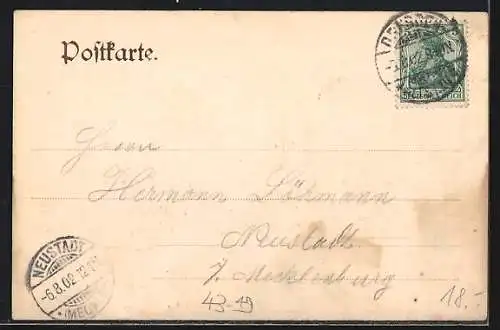 Postkarte.
Herrn
Hermann Löhmann
Neustadt
i/ Mecklenburg
NEUSTADT
-6.8.02.
(MECK
43-19
18.-